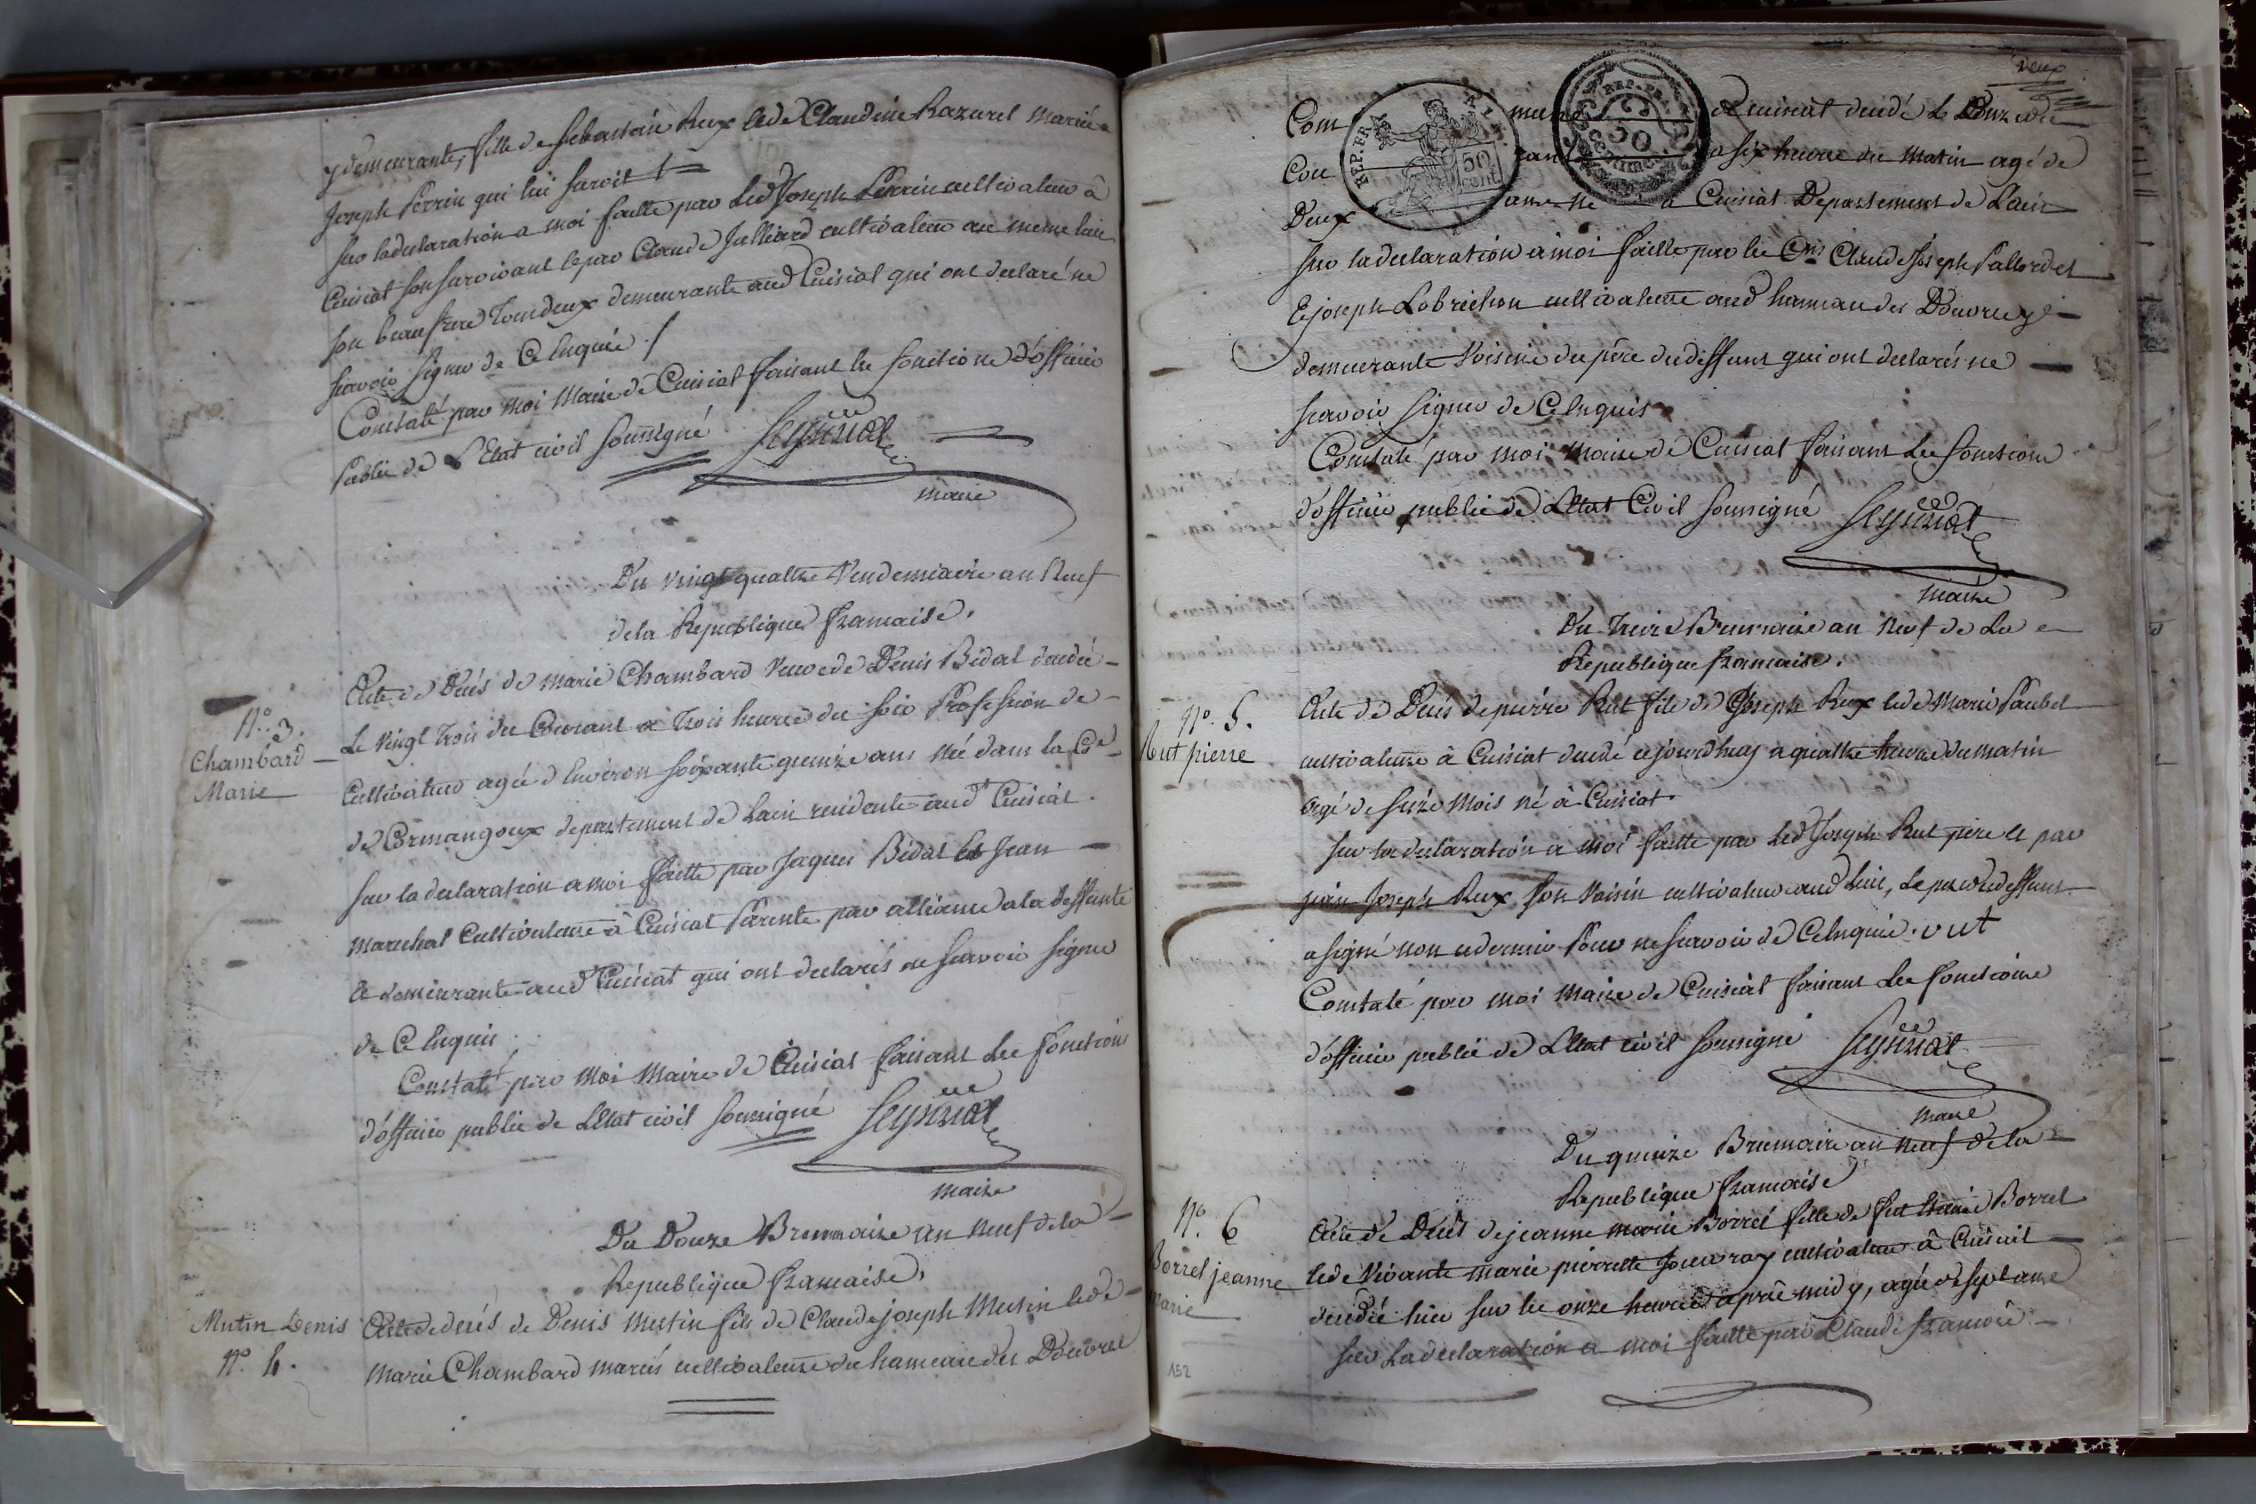 ydemeurante, fille de Sebastien Rux & de Claudine Razurel Mariée a
Joseph Perrin qui lui survit
sur la declaration a moi faitte par led Joseph Perrin cultivateur â
Cuisiat son survivant & par Claude Julliard cultivateur au meme lieu
son beaufrere Tous deux demeurants aud Cuisiat qui ont declaré ne
scavoir signer de ce Enquis /
Constaté par moi Maire de Cuisiat faisant les fonctions d'officier
Public de L'Etat civil soussigné
maire
Du vingt quattre Vendemiaire an Neuf
de la Republique francaise.
N.° 3.
Chambard
Marie
Acte de Decés de marie Chambard veuve de Denis Bidat decedée
Le vingt trois du Courant a Trois heures du soir Profession de
Cultivateur agée d'Environ soixante quinze ans née dans la C.e
de Cormangoux departement de Lain residente aud.t Cuisiat.
sur la declaration a moi faitte par Jaques Bidat & Jean
marechal Cultivateurs â Cuisiat Parents par alliance a la deffunte
& demeurants aud Cuisiat qui ont declarés ne scavoir signer
de ce Enquis
Constaté par moi Maire de Cuisiat faisant les fonctions
d'officier public de L'Etat civil soussigné
maire
Du Douze Brumaire an Neuf de la
Republique francaise.
Mutin Denis
N.° 4.
Acte de decés de Denis Mutin fils de Claude joseph Mutin & de
marie Chambard mariés cultivateurs du hameau des Douvres
deux
Commune de Cuisiat decedé Le Onze du
Courant a six heures du Matin agé de
Deux ans né a Cuisiat Departement de Lain
REP. FRA.
50
cent.
REP. FRA.
50
centimes
sur la declaration a moi faitte par les C.ens Claude Joseph Pallordet
& joseph Lobrichon cultivateurs aud hameau des Douvres y
demeurants voisins du père du deffunt qui ont declarés ne
scavoir signer de ce Enquis
Constaté par moi Maire de Cuisiat faisant Les fonctions
d'officier public de L'Etat Civil soussigné
maire
Du Treize Brumaire an Neuf de La
Republique francaise.
N.° 5.
Rut pierre
Acte de Decés de pierre Rut fils de Joseph Rux & de Marie Paubel
cultivateurs à Cuisiat decedé cejourdhuy a quattre heures du matin
agé de seize Mois né â Cuisiat.
sur la declaration a moi faitte par led Joseph Rut père et par
jean Joseph Rux son voisin cultivateurs aud Lieu, Le père du deffunt
a signé non ce dernier Pour ne scavoir de ce Enquis. rut
Constaté par moi Maire de Cuisiat faisant Les fonctions
d'officier public de L'Etat civil soussigné
maire
Du quinze Brumaire an Neuf de la
Republique francaise
N.° 6
Borrel jeanne
marie
Acte de Decés de jeanne marie Borrel fille de feu Borrel
& de vivante marie pierrette cultivateurs â Cuisiat
decedée hier sur les onze heures après midy, agée de sept ans
sur La declaration a moi faitte par Claude francois
152